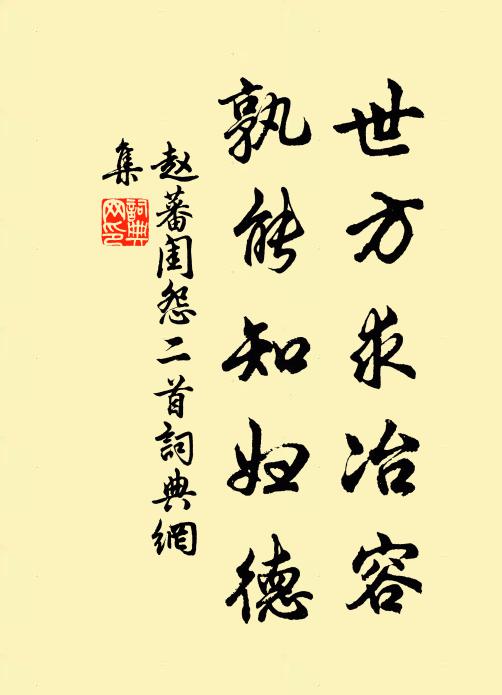 世方求冶容
孰能知妇德
赵蕃闺怨二首詞典網
集
詞典
网印